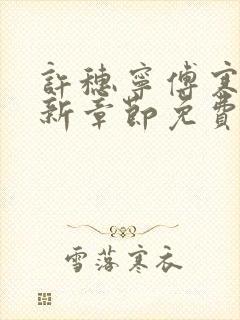 許穗寧傅寒
新章節免費
雪落寒衣